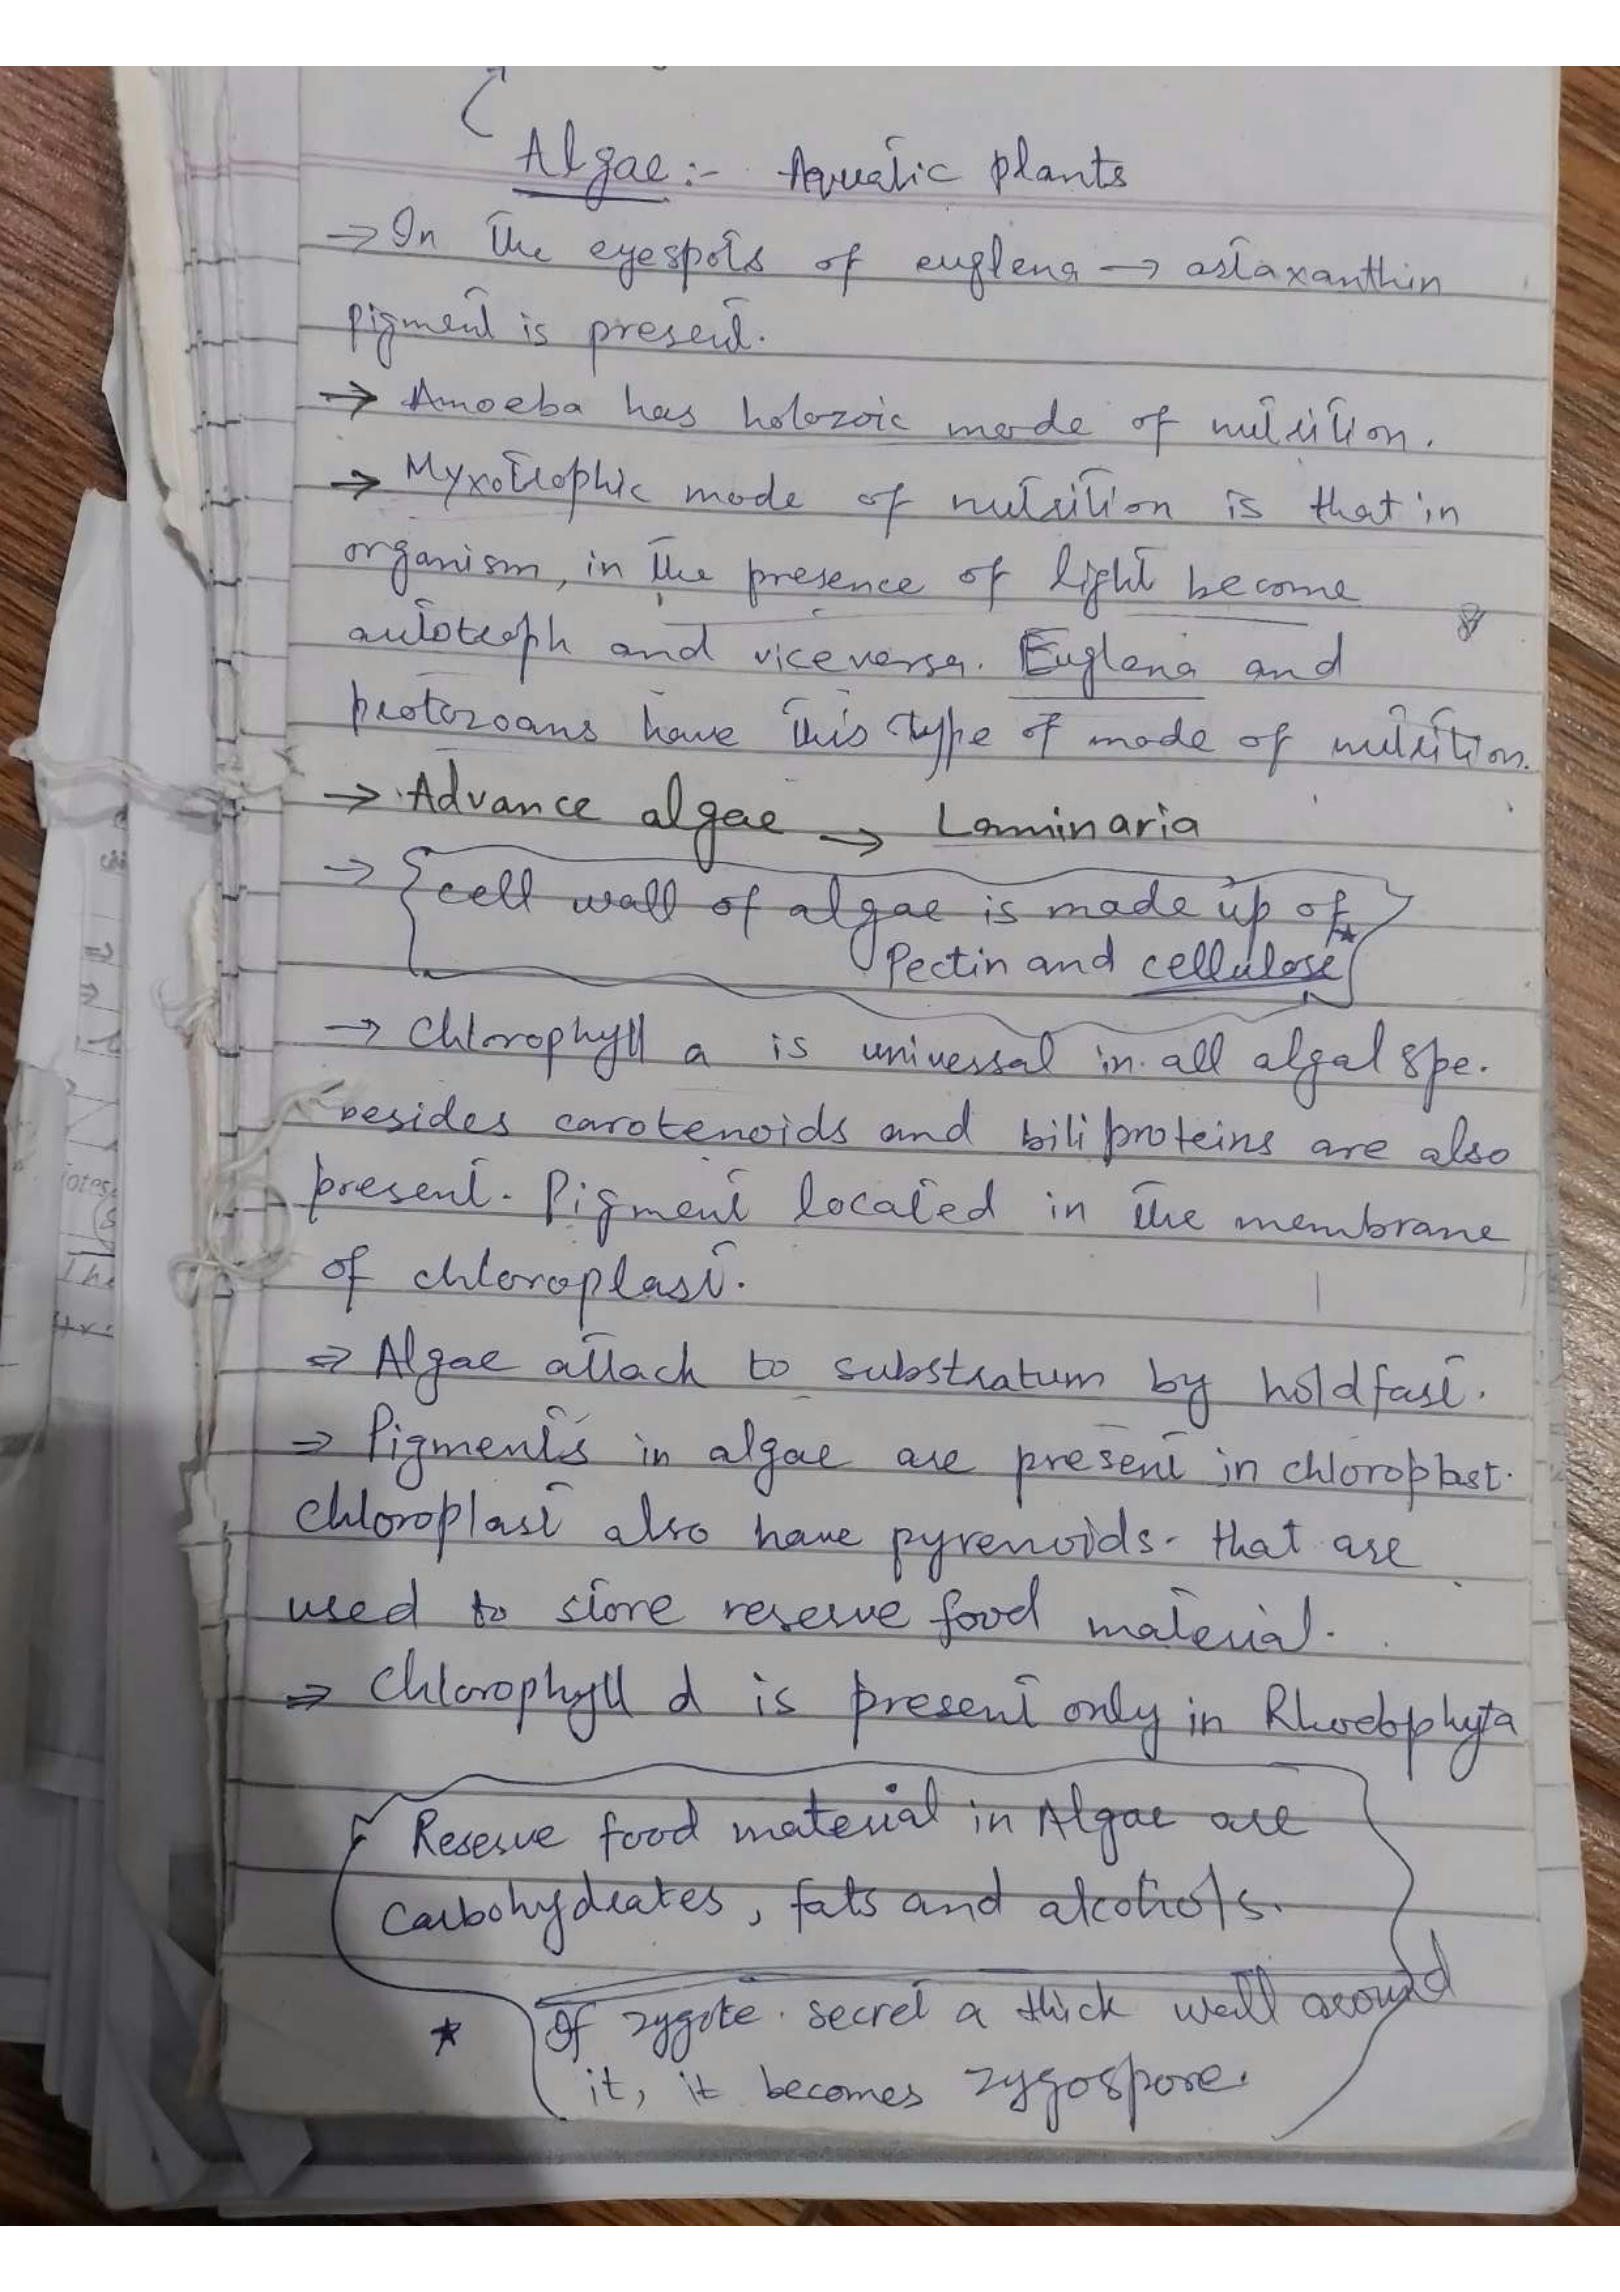 Algae :- Aquatic plants
→ In the eyespots of euglena → astaxanthin
pigment is present.
→ Amoeba has holozoic mode of nutrition.
→ Myxotrophic mode of nutrition is that in
organism, in the presence of light become
autotroph and vice versa. Euglena and
protozoans have this type of mode of nutrition.
→ Advance algae → Laminaria
→ cell wall of algae is made up of
Pectin and cellulose
→ Chlorophyll a is universal in all algal spe.
besides carotenoids and biliproteins are also
present. Pigment located in the membrane
of chloroplast.
⇒ Algae attach to substratum by holdfast.
⇒ Pigments in algae are present in chloroplast.
Chloroplast also have pyrenoids. that are
used to store reserve food material.
⇒ Chlorophyll d is present only in Rhodophyta
Reserve food material in Algae are
Carbohydrates, fats and alcohols.
★ If zygote secret a thick wall around
it, it becomes zygospore.